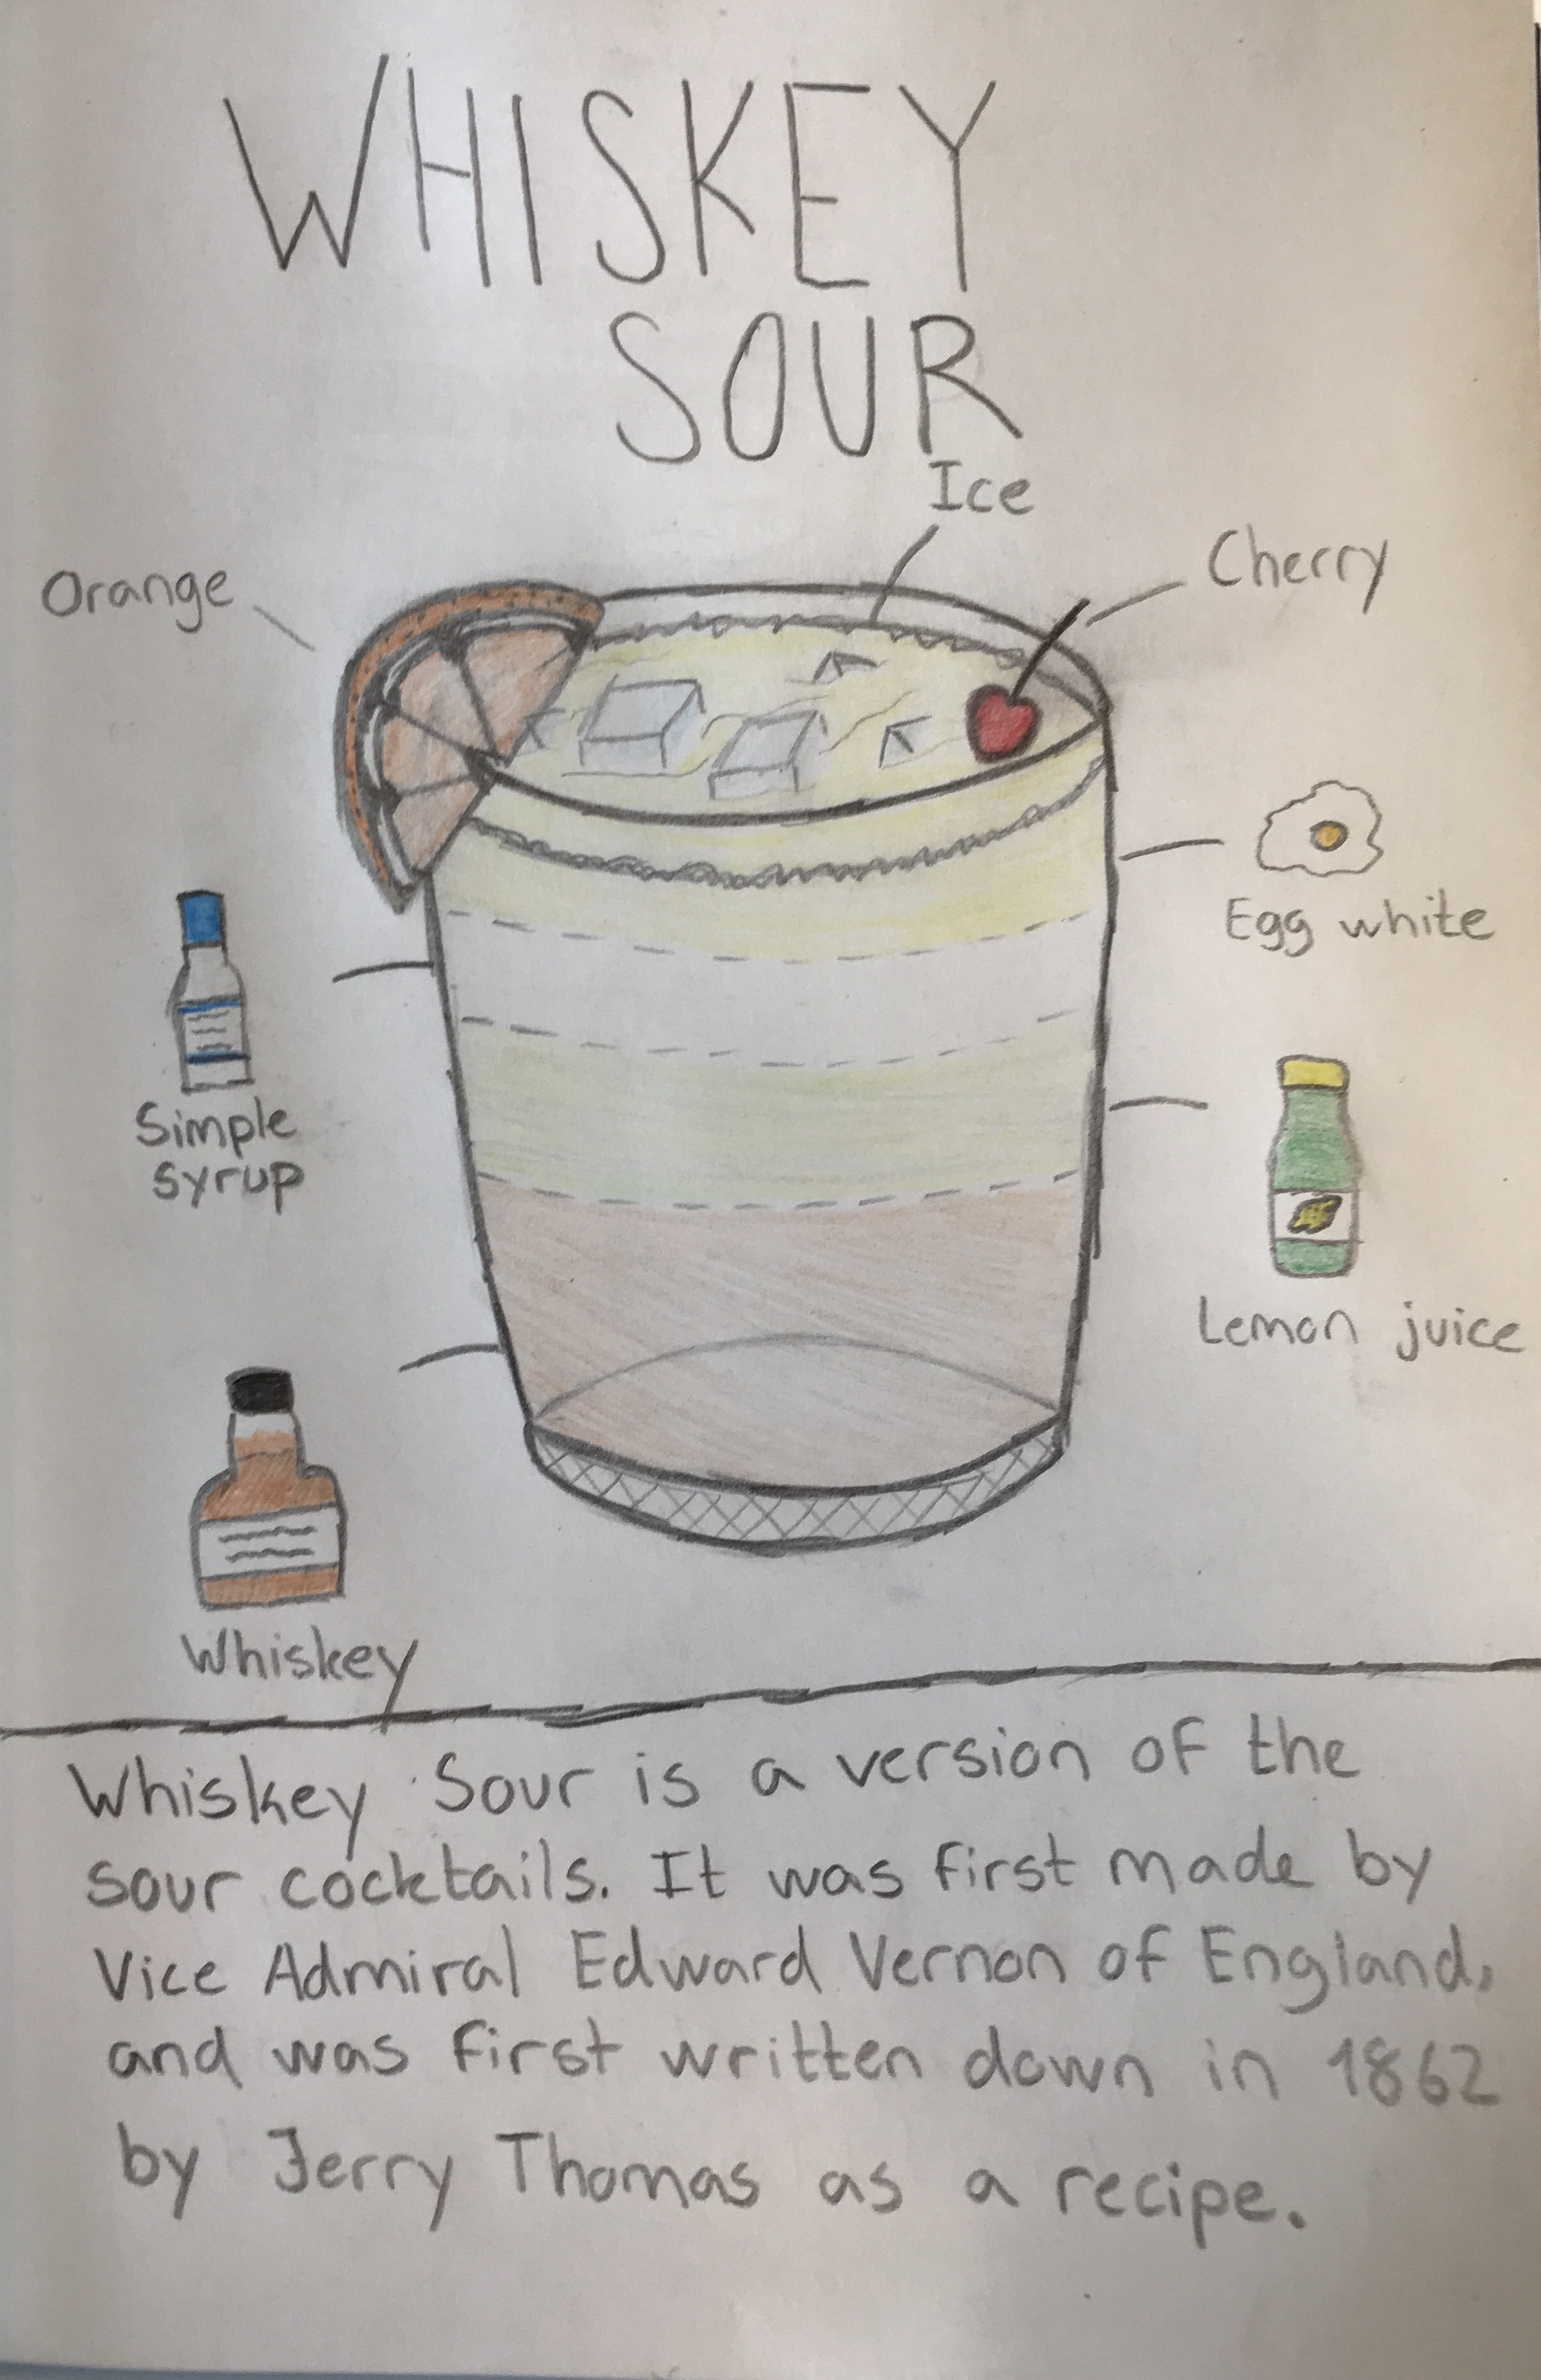 WHISKEY
SOUR
Ice
Cherry
Orange
Egg white
Simple
syrup
Lemon juice
Whiskey
Whiskey Sour is a version of the
sour cocktails. It was first made by
Vice Admiral Edward Vernon of England,
and was first written down in 1862
by Jerry Thomas as a recipe.